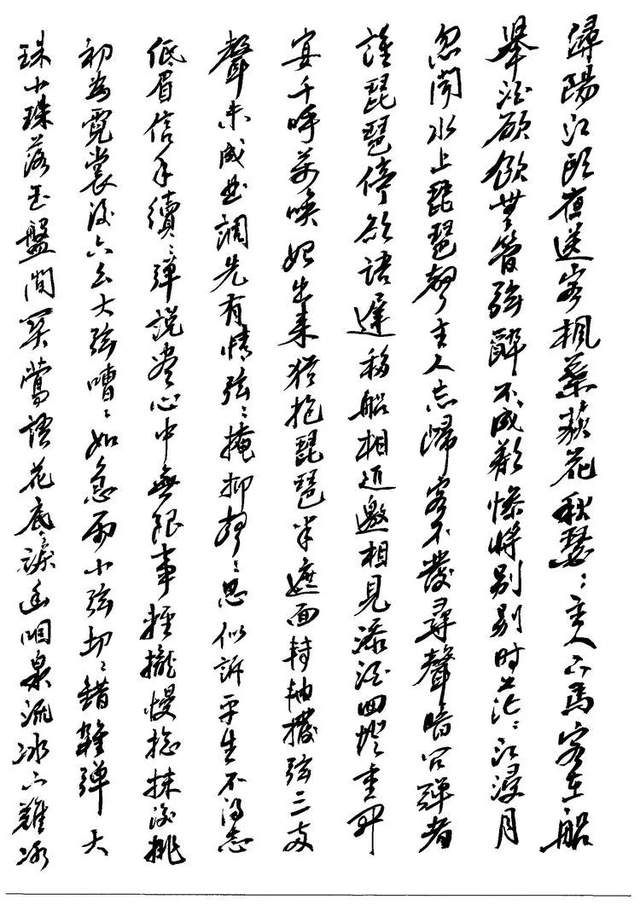 潯陽江頭夜送客楓葉荻花秋瑟〻主人下馬客在船
舉酒欲飲無管弦醉不成歡慘將别别時茫〻江浸月
忽聞水上琵琶聲主人忘歸客不發尋聲暗問彈者
誰琵琶停欲語遲移船相近邀相見添酒回燈重開
宴千呼萬喚始出來猶抱琵琶半遮面轉軸撥弦三兩
聲未成曲調先有情弦〻掩抑聲〻思似訴平生不得志
低眉信手續〻彈說盡心中無限事輕攏慢捻抹復挑
初為霓裳後六么大弦嘈〻如急雨小弦切〻錯雜彈大
珠小珠落玉盤間關鶯語花底幽咽泉流冰下難冰